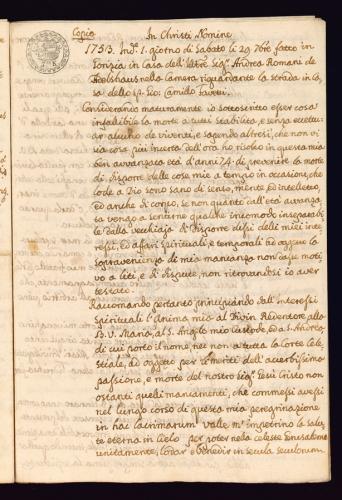 Copia
In Christi Nomine
1753. Ind. 1. giorno di Sabato li 29 7bre fatto in
Gorizia in Casa dell' Illre Sigr Andrea Romani de
nella Camera riguardante la strada in Ca-
sa dello Sr. Gio: Camillo
Considerando maturamente io sottoscritto esser cosa
infallibile la morte a tutti stabilita, e senza eccettu-
ar alcuno de viventi, e sapendo altresi, che non vi
sia cosa più incerta dell' ora, ho risolto in questa mia
ben avvanzata età d'anni 74. di prevenire la morte
di disporre delle cose mie a tempo in occasion, che
lode a Dio sono sano di senso, mente, ed intelletto,
ed anche di corpo, se non quanto dall' età avvanza-
ta vengo a sentirne qualche incomodo inseparabi-
le dalla vecchiaja di disporre dissi delli miei inte-
ressi, ed affari spirituali, e temporali ad oggetto la
sopravenienza di mia mancanza non causi moti-
vo a liti e di dispute, non ritrovandosi io aver
testato.
Raccomando pertanto principiando dall' interessi
spirituali l'anima mia al Divin Redentore alla
B. V. Maria, al S. Angelo mio Custode, ed a S. Andrea
di cui porto il nome nec non a tutta la Corte Cele-
stiale, ad oggetto per li meriti dell' acerbissima
passione, e morte del nostro Sigr Gesù Cristo non
ostanti quelli mancamenti, che commessi avessi
nel lungo corso di questa mia peregrinazione
in hac lacrimarum valle, m'impetrino la salu-
te eterna in Cielo per poter nella celeste Gerusalemme
unitamente, lodar e benedir in secula seculorum